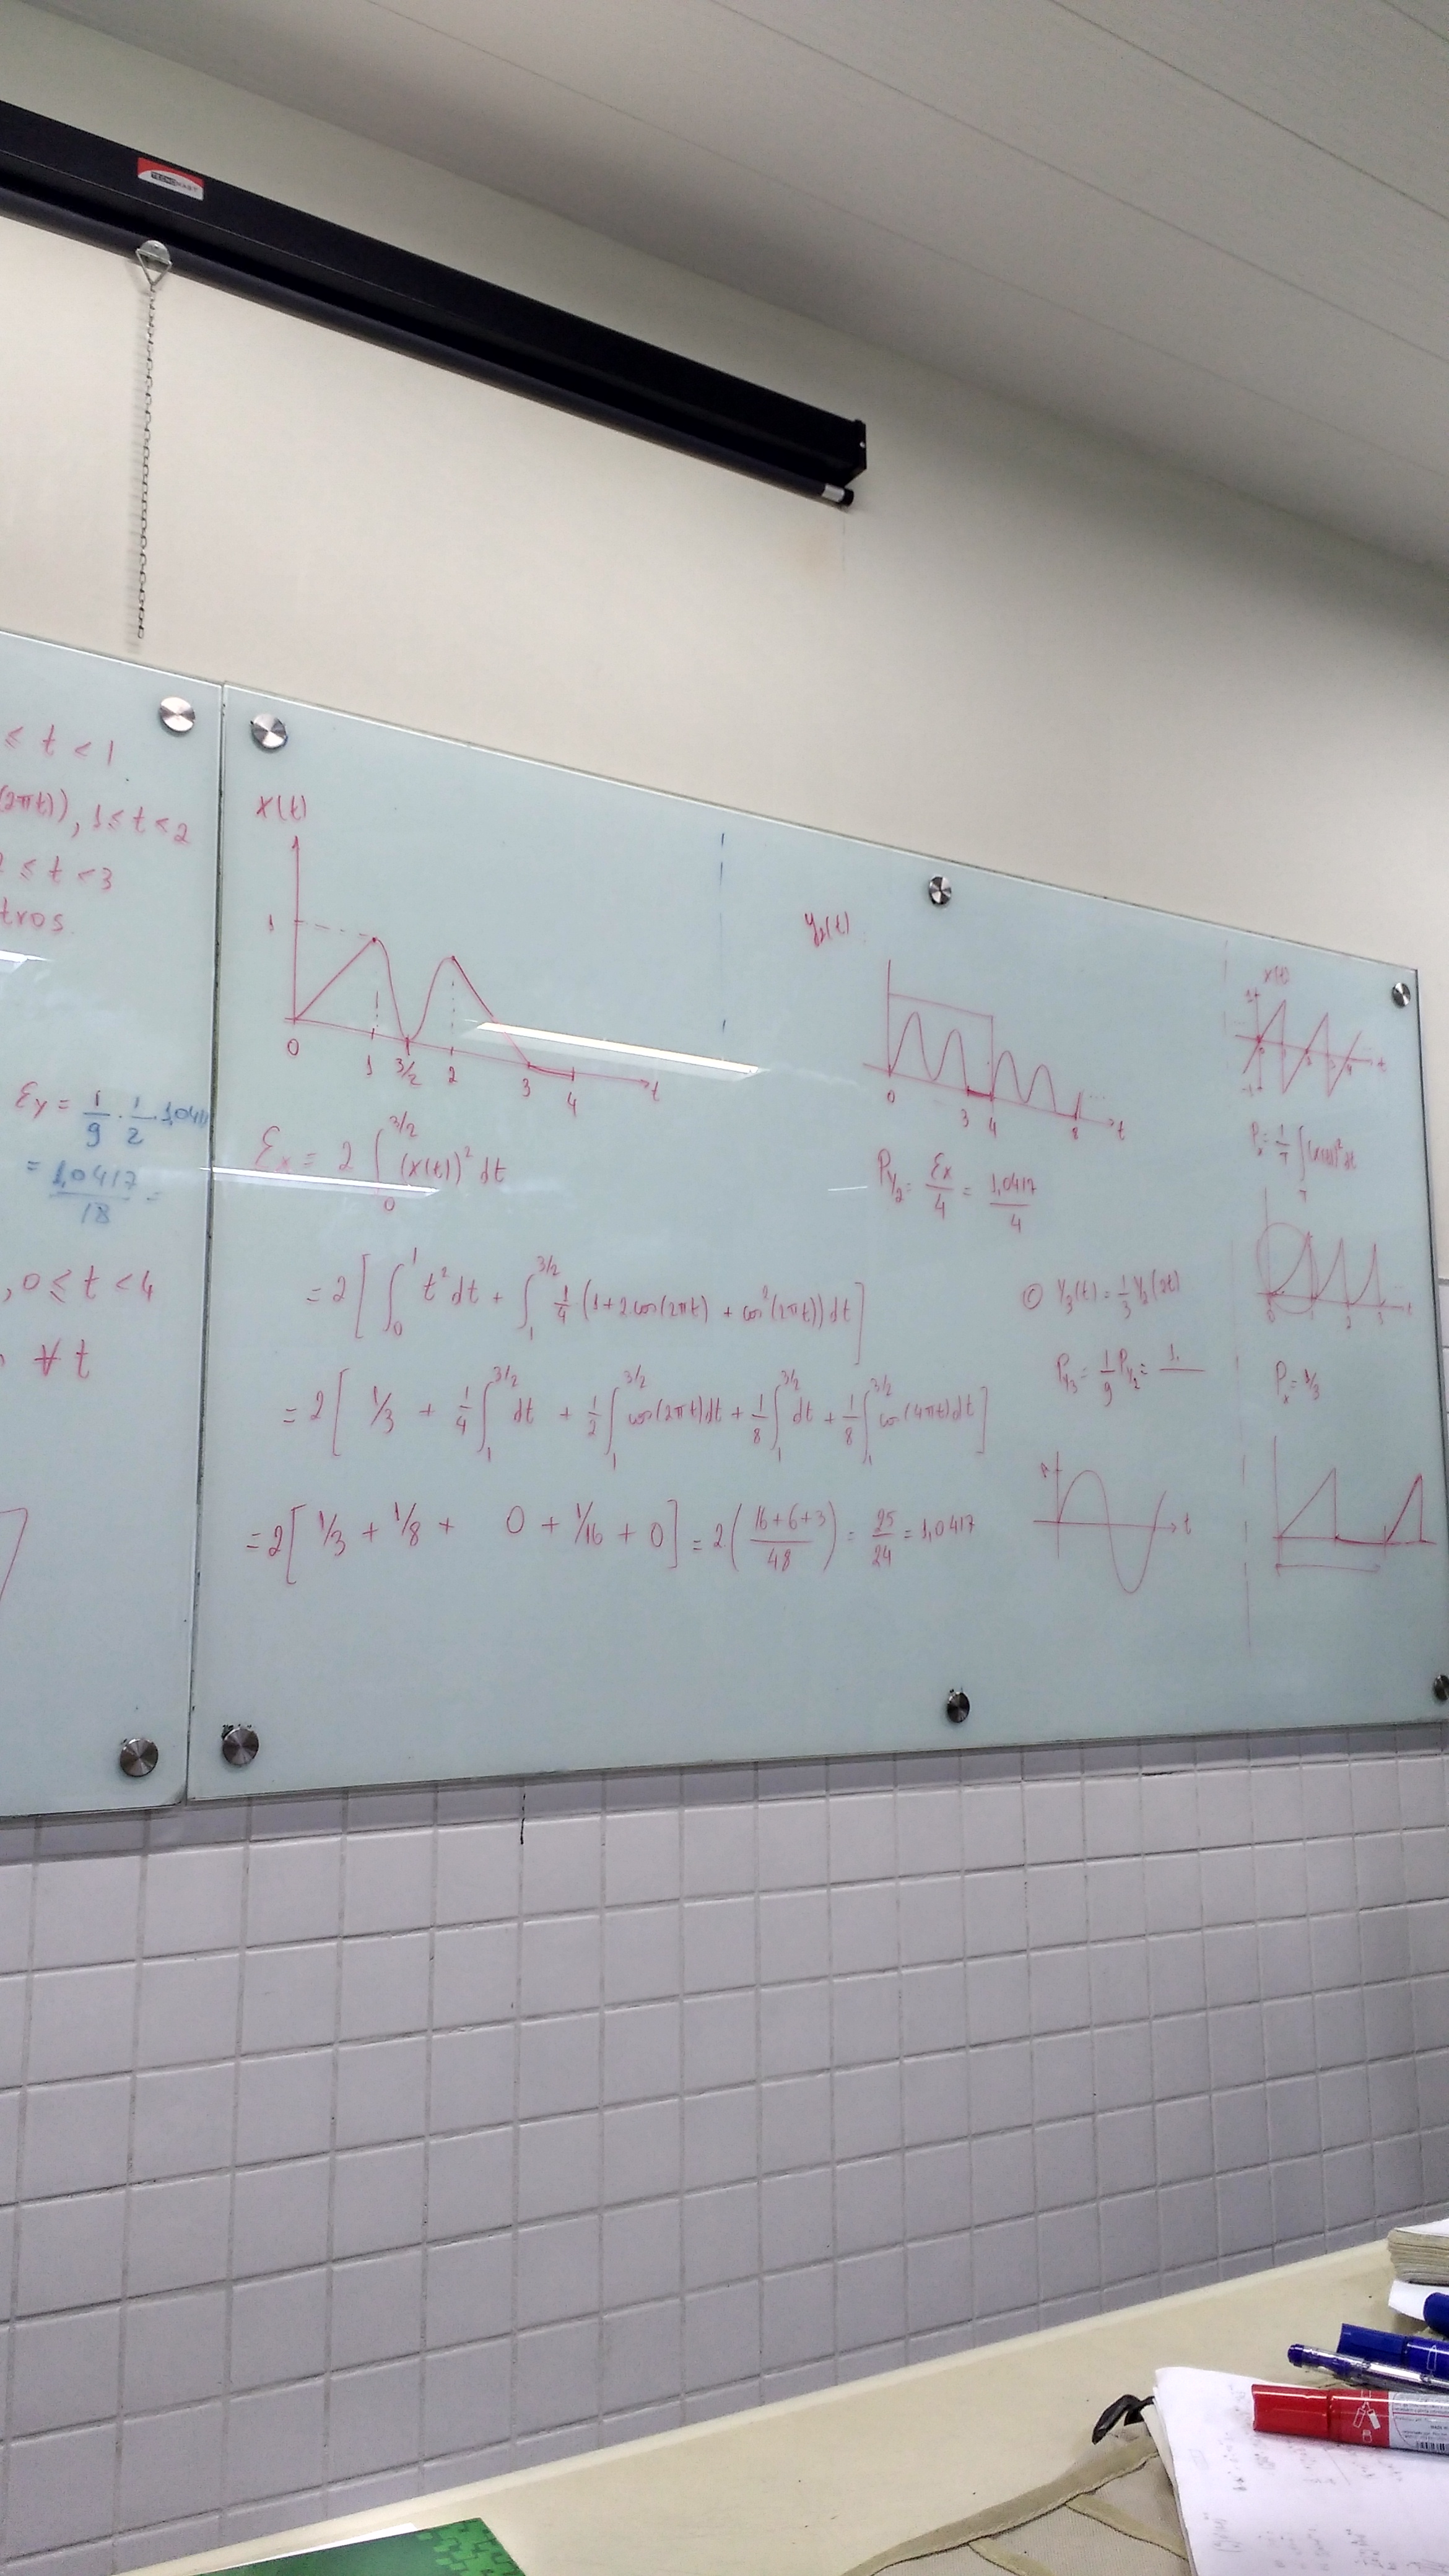 ≤ t < 1
(2πt)), 1 ≤ t < 2
≤ t < 3
tros.
Ey = 1/9 · 1/2 · 1,0417
= 1,0417/18 =
, 0 ≤ t < 4
∀ t
x(t)
1
0 1 3/2 2 3 4 t
Ex = 2 ∫₀^{3/2} (x(t))² dt
= 2 [ ∫₀^1 t² dt + ∫₁^{3/2} 1/4 (1 + 2cos(2πt) + cos²(2πt)) dt ]
= 2 [ 1/3 + 1/4 ∫₁^{3/2} dt + 1/2 ∫₁^{3/2} cos(2πt) dt + 1/8 ∫₁^{3/2} dt + 1/8 ∫₁^{3/2} cos(4πt) dt ]
= 2 [ 1/3 + 1/8 + 0 + 1/16 + 0 ] = 2 ( (16+6+3)/48 ) = 25/24 = 1,0417
y₂(t)
0 3 4 8 ... t
Py₂ = Ex/4 = 1,0417/4
ⓒ y₃(t) = 1/3 y₂(2t)
Py₃ = 1/9 Py₂ = 1,
t
x(t)
1
-1
t
Px = 1/T ∫_T (x(t))² dt
0 2 3 t
Px = 1/3